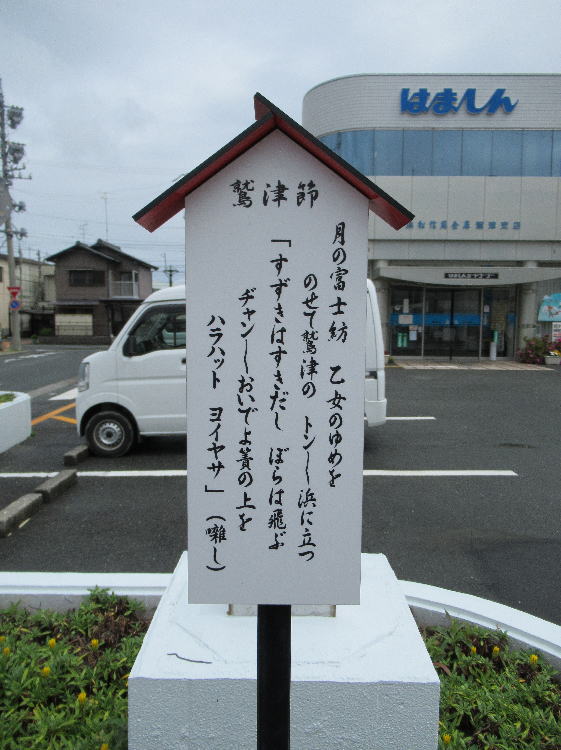 はましん
浜松信用金庫鷲津支店
鷲津節
月の富士紡　乙女のゆめを
のせて鷲津の　トンし浜に立つ
「すずきはすきだし　ぼらは飛ぶ
ヂャンしおいでよ簀の上を
ハラハット　ヨイヤサ」（囃し）